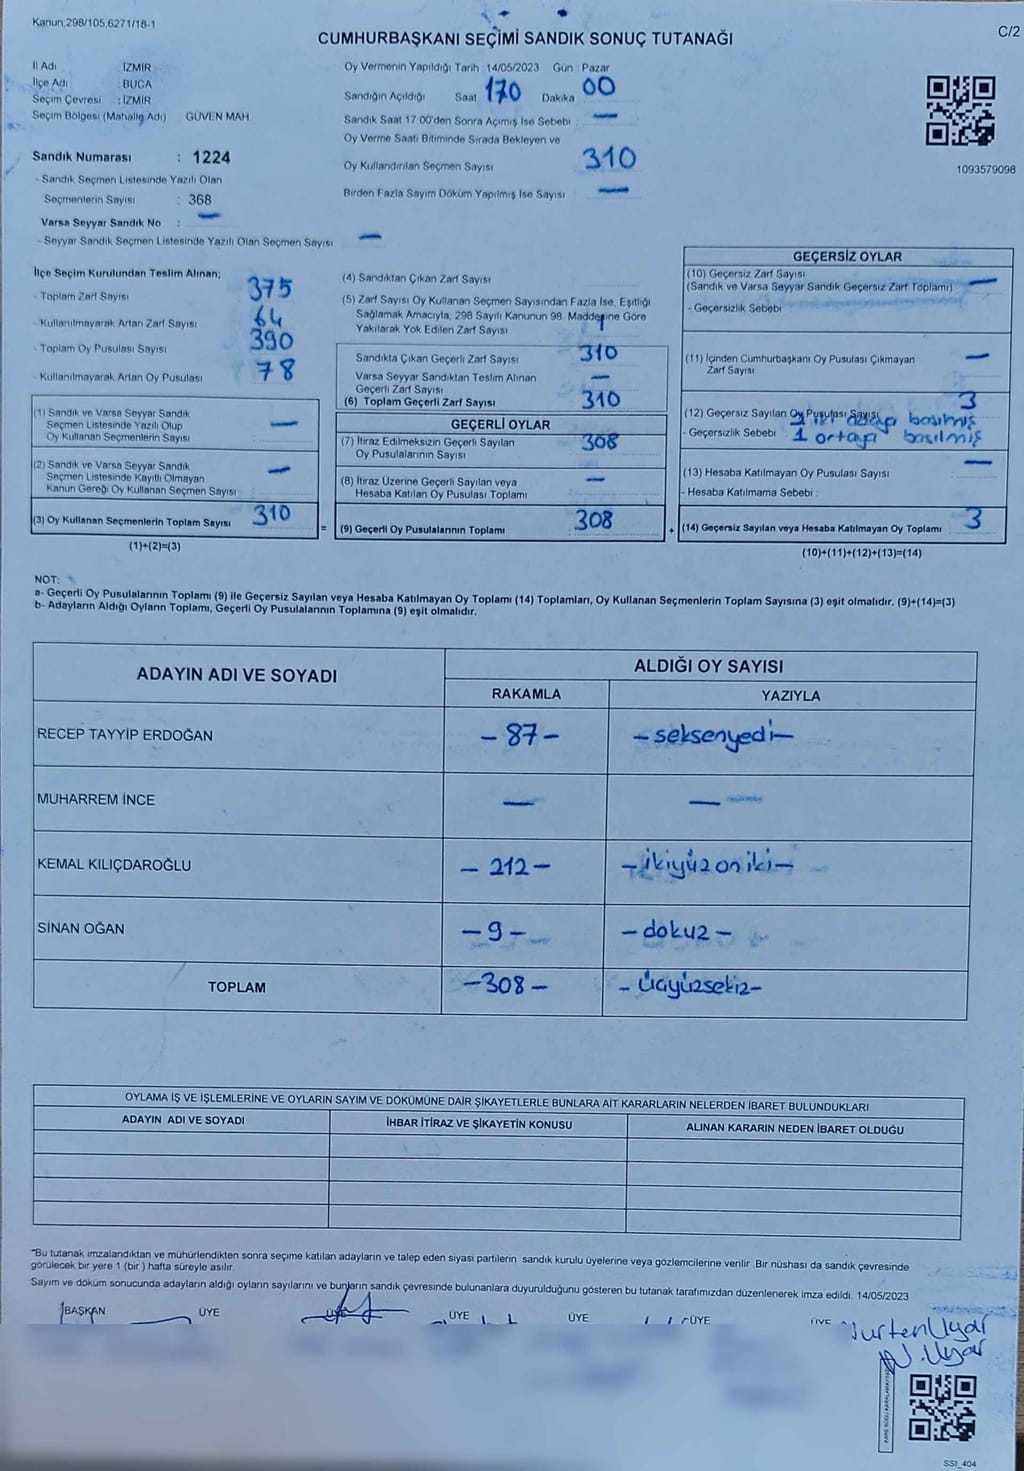 Kanun,298/105,6271/18-1
C/2
CUMHURBAŞKANI SEÇİMİ SANDIK SONUÇ TUTANAĞI
İl Adı İZMİR
İlçe Adı BUCA
Seçim Çevresi : İZMİR
Seçim Bölgesi (Mahalle Adı) GÜVEN MAH.
Sandık Numarası : 1224
- Sandık Seçmen Listesinde Yazılı Olan
Seçmenlerin Sayısı : 368
Varsa Seyyar Sandık No : —
- Seyyar Sandık Seçmen Listesinde Yazılı Olan Seçmen Sayısı —
Oy Vermenin Yapıldığı Tarih : 14/05/2023 Gün : Pazar
Sandığın Açıldığı Saat 170 Dakika 00
Sandık Saat 17:00'den Sonra Açımış İse Sebebi —
Oy Verme Saati Bitiminde Sırada Bekleyen ve
Oy Kullandırılan Seçmen Sayısı 310
Birden Fazla Sayım Döküm Yapılmış İse Sayısı —
1093579098
İlçe Seçim Kurulundan Teslim Alınan;
- Toplam Zarf Sayısı 375
- Kullanılmayarak Artan Zarf Sayısı 64
- Toplam Oy Pusulası Sayısı 390
- Kullanılmayarak Artan Oy Pusulası 78
(1) Sandık ve Varsa Seyyar Sandık
Seçmen Listesinde Yazılı Olup
Oy Kullanan Seçmenlerin Sayısı —
(2) Sandık ve Varsa Seyyar Sandık
Seçmen Listesinde Kayıtlı Olmayan
Kanun Gereği Oy Kullanan Seçmen Sayısı —
(3) Oy Kullanan Seçmenlerin Toplam Sayısı 310
(1)+(2)=(3)
(4) Sandıktan Çıkan Zarf Sayısı
(5) Zarf Sayısı Oy Kullanan Seçmen Sayısından Fazla İse, Eşitliği
Sağlamak Amacıyla, 298 Sayılı Kanunun 98. Maddesine Göre
Yakılarak Yok Edilen Zarf Sayısı 1
Sandıkta Çıkan Geçerli Zarf Sayısı 310
Varsa Seyyar Sandıktan Teslim Alınan
Geçerli Zarf Sayısı —
(6) Toplam Geçerli Zarf Sayısı 310
GEÇERLİ OYLAR
(7) İtiraz Edilmeksizin Geçerli Sayılan
Oy Pusulalarının Sayısı 308
(8) İtiraz Üzerine Geçerli Sayılan veya
Hesaba Katılan Oy Pusulası Toplamı —
= (9) Geçerli Oy Pusulalarının Toplamı 308
GEÇERSİZ OYLAR
(10) Geçersiz Zarf Sayısı
(Sandık ve Varsa Seyyar Sandık Geçersiz Zarf Toplamı) —
- Geçersizlik Sebebi
(11) İçinden Cumhurbaşkanı Oy Pusulası Çıkmayan
Zarf Sayısı —
(12) Geçersiz Sayılan Oy Pusulası Sayısı 3
basılmış
- Geçersizlik Sebebi 1 ortaya basılmış
(13) Hesaba Katılmayan Oy Pusulası Sayısı —
- Hesaba Katılmama Sebebi :
+ (14) Geçersiz Sayılan veya Hesaba Katılmayan Oy Toplamı 3
(10)+(11)+(12)+(13)=(14)
NOT:
a- Geçerli Oy Pusulalarının Toplamı (9) ile Geçersiz Sayılan veya Hesaba Katılmayan Oy Toplamı (14) Toplamları, Oy Kullanan Seçmenlerin Toplam Sayısına (3) eşit olmalıdır. (9)+(14)=(3)
b- Adayların Aldığı Oyların Toplamı, Geçerli Oy Pusulalarının Toplamına (9) eşit olmalıdır.
ADAYIN ADI VE SOYADI ALDIĞI OY SAYISI
RAKAMLA YAZIYLA
RECEP TAYYİP ERDOĞAN - 87 - - seksenyedi -
MUHARREM İNCE — —
KEMAL KILIÇDAROĞLU - 212 - - ikiyüz on iki -
SİNAN OĞAN - 9 - - dokuz -
TOPLAM - 308 - - Üçyüzsekiz -
OYLAMA İŞ VE İŞLEMLERİNE VE OYLARIN SAYIM VE DÖKÜMÜNE DAİR ŞİKAYETLERLE BUNLARA AİT KARARLARIN NELERDEN İBARET BULUNDUKLARI
ADAYIN ADI VE SOYADI İHBAR İTİRAZ VE ŞİKAYETİN KONUSU ALINAN KARARIN NEDEN İBARET OLDUĞU
"Bu tutanak imzalandıktan ve mühürlendikten sonra seçime katılan adayların ve talep eden siyasi partilerin sandık kurulu üyelerine veya gözlemcilerine verilir. Bir nüshası da sandık çevresinde
görülecek bir yere 1 (bir ) hafta süreyle asılır.
Sayım ve döküm sonucunda adayların aldığı oyların sayılarını ve bunların sandık çevresinde bulunanlara duyurulduğunu gösteren bu tutanak tarafımızdan düzenlenerek imza edildi. 14/05/2023
BAŞKAN ÜYE ÜYE ÜYE ÜYE ÜYE ÜYE
Nurten Uyar
N. Uyar
SSI_404